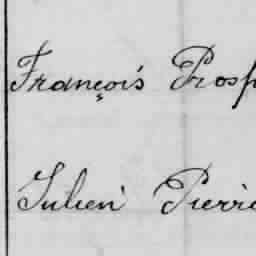 François Prosp
Julien Pierre